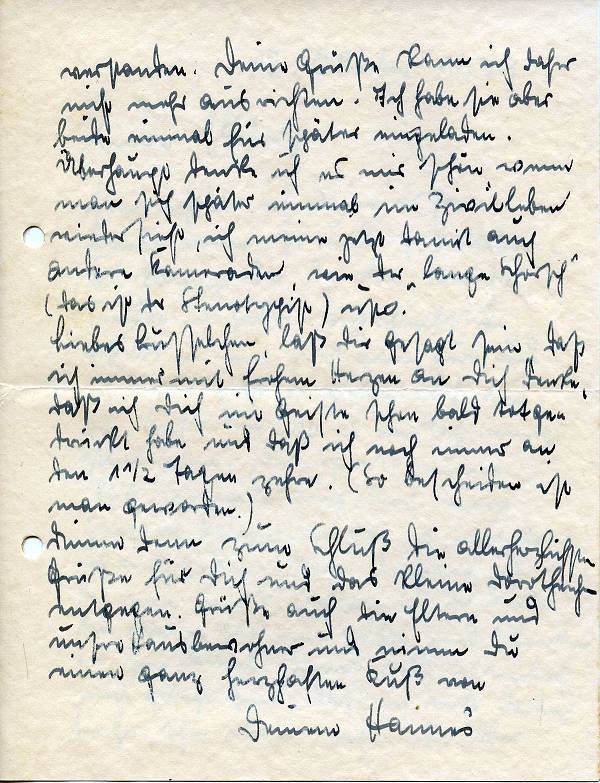 verstanden. Deine Grüße kann ich daher
nicht mehr ausrichten. Ich habe sie aber
beide einmal für später eingeladen.
Überhaupt denke ich es mir schön wenn
man sich später einmal im Zivilleben
wieder sieht, ich meine jetzt damit auch
andere Kameraden, wie der „lange Schorsch"
(das ist der Stenotypist) usw.
Liebes Busselchen, laß dir gesagt sein, daß
ich immer mit frohem Herzen an Dich denke,
daß ich Dich im Geiste schon bald totge-
drückt habe und daß ich noch immer an
den 1 1/2 Tagen zehre. (So bescheiden ist
man geworden.)
Nimm denn zum Schluß die allerherzlichsten
Grüße für Dich und das kleine Dorothech-
entgegen. Grüße auch die Eltern und
unsre Hausbewohner und nimm Du
einen ganz herzhaften Kuß von
Deinem Hannes